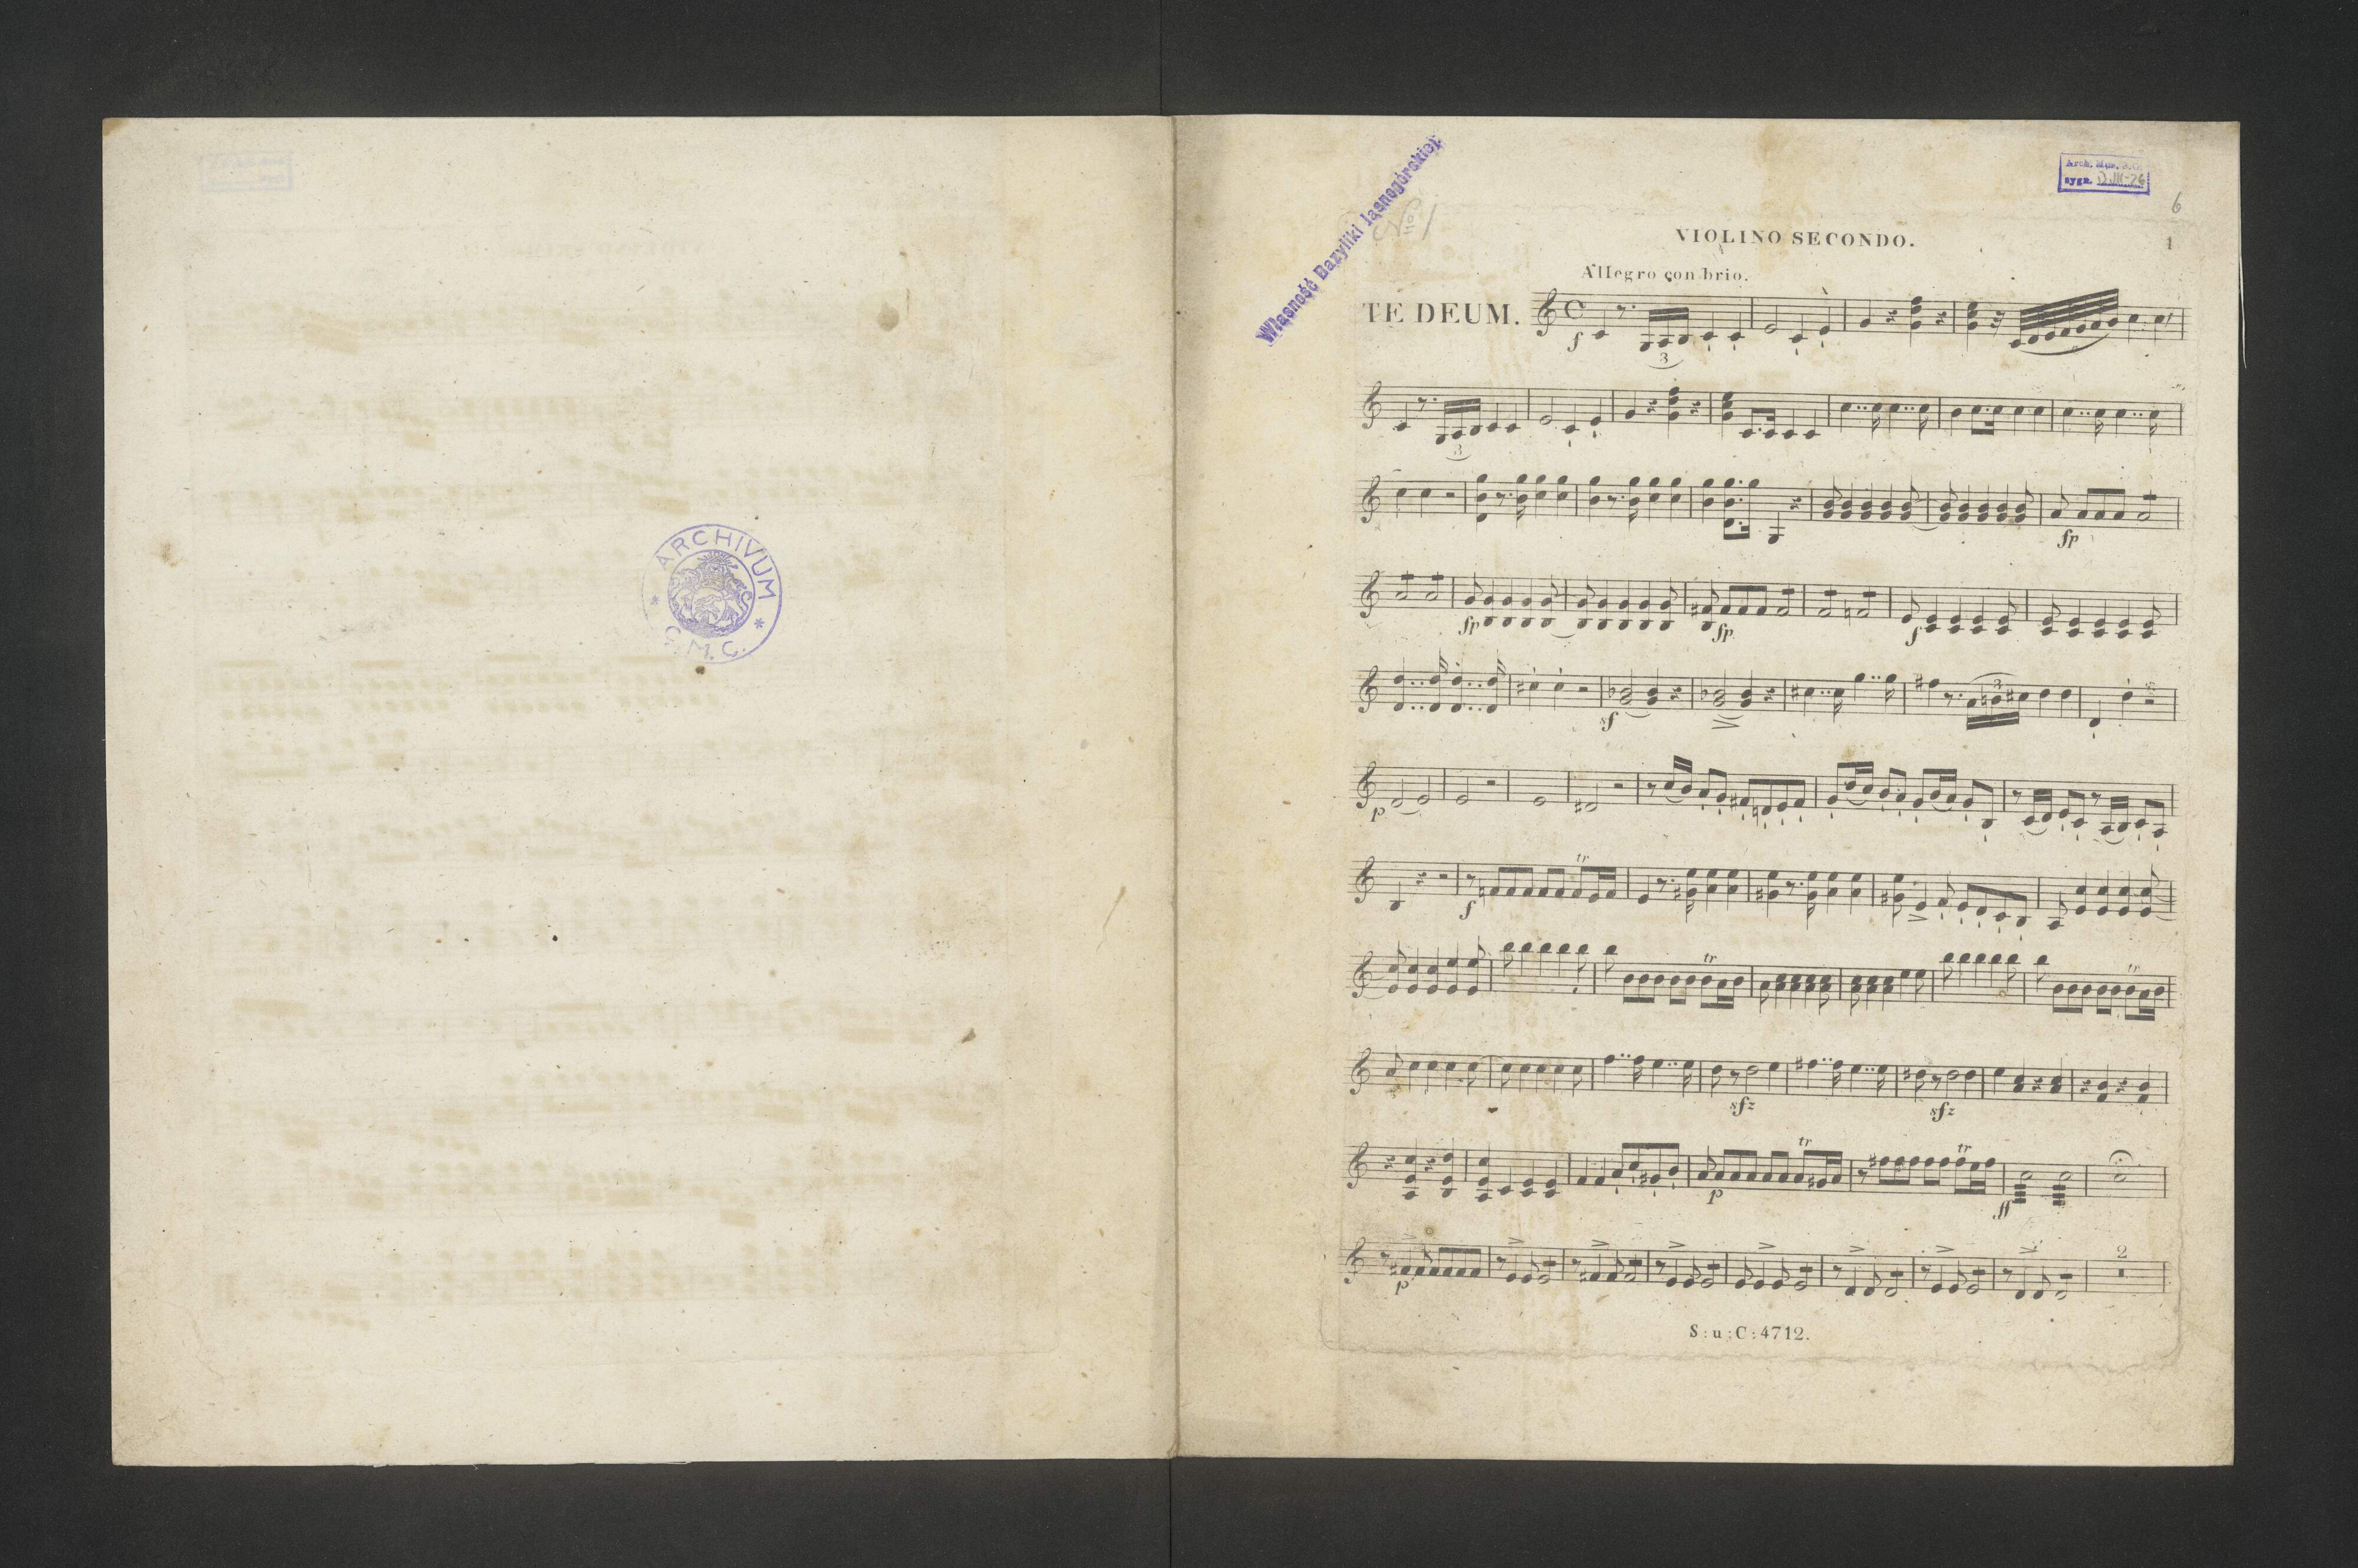 ARCHIVUM
C. M. C.
Własność Bazyliki Jasnogórskiej
No 1
Arch. Mus.
sygn.
6
VIOLINO SECONDO.
1
Allegro con brio.
TE DEUM.
f
3
3
fp
fp
fp
f
sf
3
p
tr
f
tr
tr
sfz
sfz
tr
tr
p
ff
p
2
S:u:C:4712.